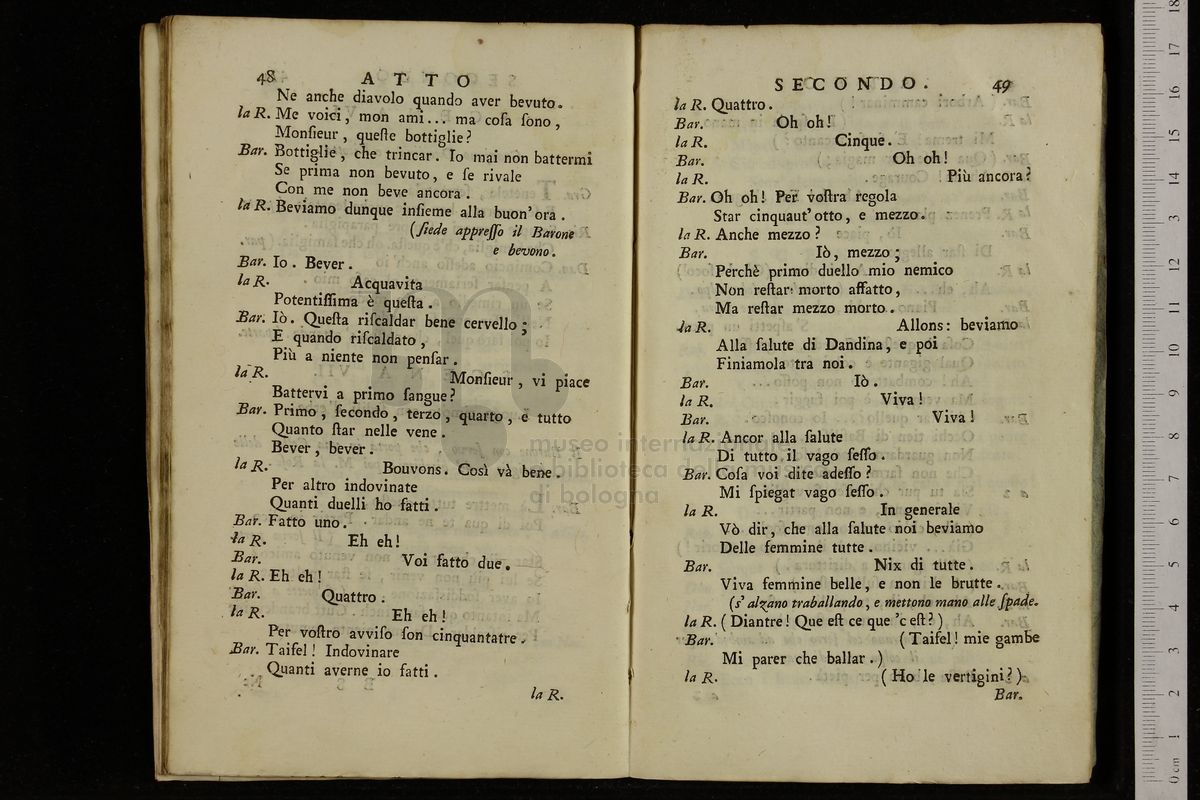 48 ATTO
Ne anche diavolo quando aver bevuto.
la R. Me voici, mon ami... ma coſa ſono,
Monſieur, queſte bottiglie?
Bar. Bottiglie, che trincar. Io mai non battermi
Se prima non bevuto, e ſe rivale
Con me non beve ancora.
la R. Beviamo dunque inſieme alla buon' ora.
(ſiede appreſſo il Barone
e bevono.
Bar. Io. Bever.
la R. Acquavita
Potentiſſima è queſta.
Bar. Iò. Queſta riſcaldar bene cervello;
E quando riſcaldato,
Più a niente non penſar.
la R. Monſieur, vi piace
Battervi a primo ſangue?
Bar. Primo, ſecondo, terzo, quarto, e tutto
Quanto ſtar nelle vene.
Bever, bever.
la R. Bouvons. Così và bene.
Per altro indovinate
Quanti duelli ho fatti.
Bar. Fatto uno.
la R. Eh eh!
Bar. Voi fatto due.
la R. Eh eh!
Bar. Quattro.
la R. Eh eh!
Per voſtro avviſo ſon cinquantatre.
Bar. Taifel! Indovinare
Quanti averne io fatti.
la R.
SECONDO. 49
la R. Quattro.
Bar. Oh oh!
la R. Cinque.
Bar. Oh oh!
la R. Più ancora?
Bar. Oh oh! Per voſtra regola
Star cinquaut' otto, e mezzo.
la R. Anche mezzo?
Bar. Iò, mezzo;
Perchè primo duello mio nemico
Non reſtar morto affatto,
Ma reſtar mezzo morto.
la R. Allons: beviamo
Alla ſalute di Dandina, e poi
Finiamola tra noi.
Bar. Iò.
la R. Viva!
Bar. Viva!
la R. Ancor alla ſalute
Di tutto il vago ſeſſo.
Bar. Coſa voi dite adeſſo?
Mi ſpiegat vago ſeſſo.
la R. In generale
Vò dir, che alla ſalute noi beviamo
Delle femmine tutte.
Bar. Nix di tutte.
Viva femmine belle, e non le brutte.
(s' alzano traballando, e mettono mano alle ſpade.
la R. (Diantre! Que eſt ce que 'c eſt?)
Bar. (Taifel! mie gambe
Mi parer che ballar.)
la R. (Ho le vertigini?)
Bar.
museo internazionale
e biblioteca della musica
di bologna
0 cm 1 2 3 4 5 6 7 8 9 10 11 12 13 14 15 16 17 18